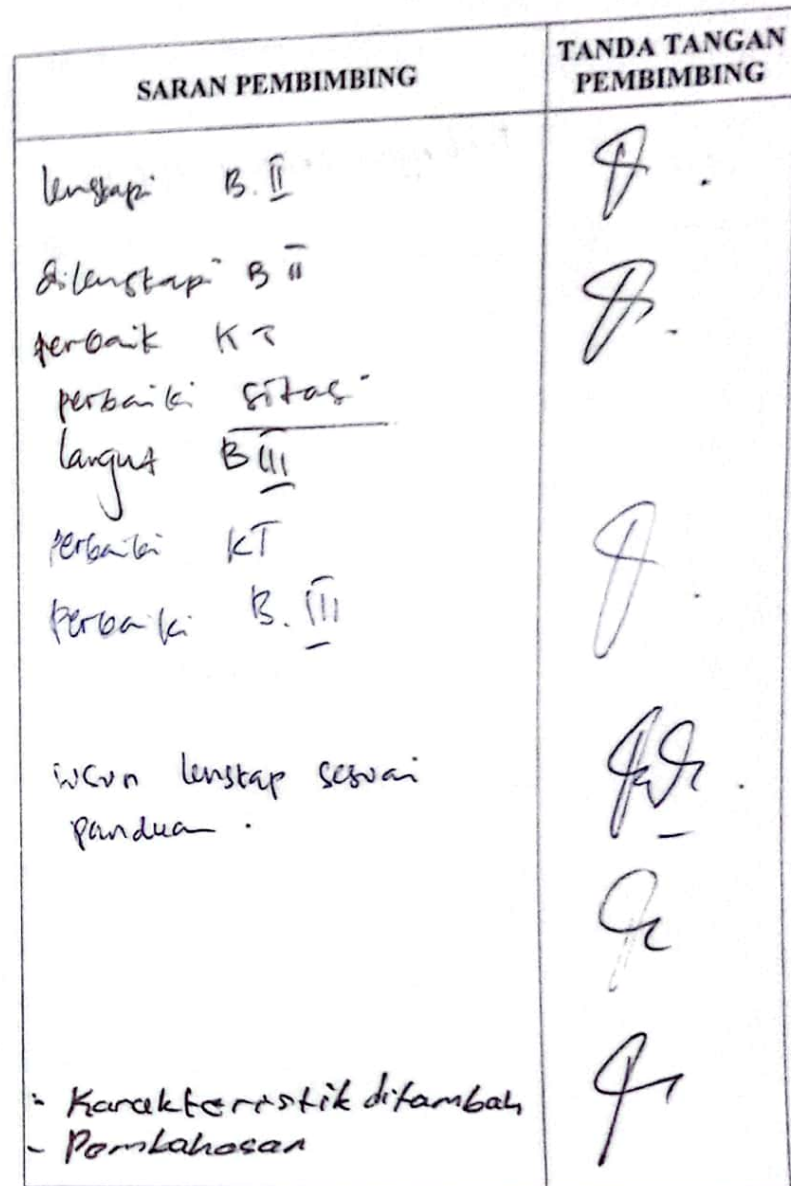 SARAN PEMBIMBING
TANDA TANGAN
PEMBIMBING
lengkapi B. II
dilengkapi B II
perbaik KT
perbaiki sitasi
lanjut B III
perbaiki KT
perbaiki B. III
susun lengkap sesuai
panduan .
- Karakteristik ditambah
- Pembahasan